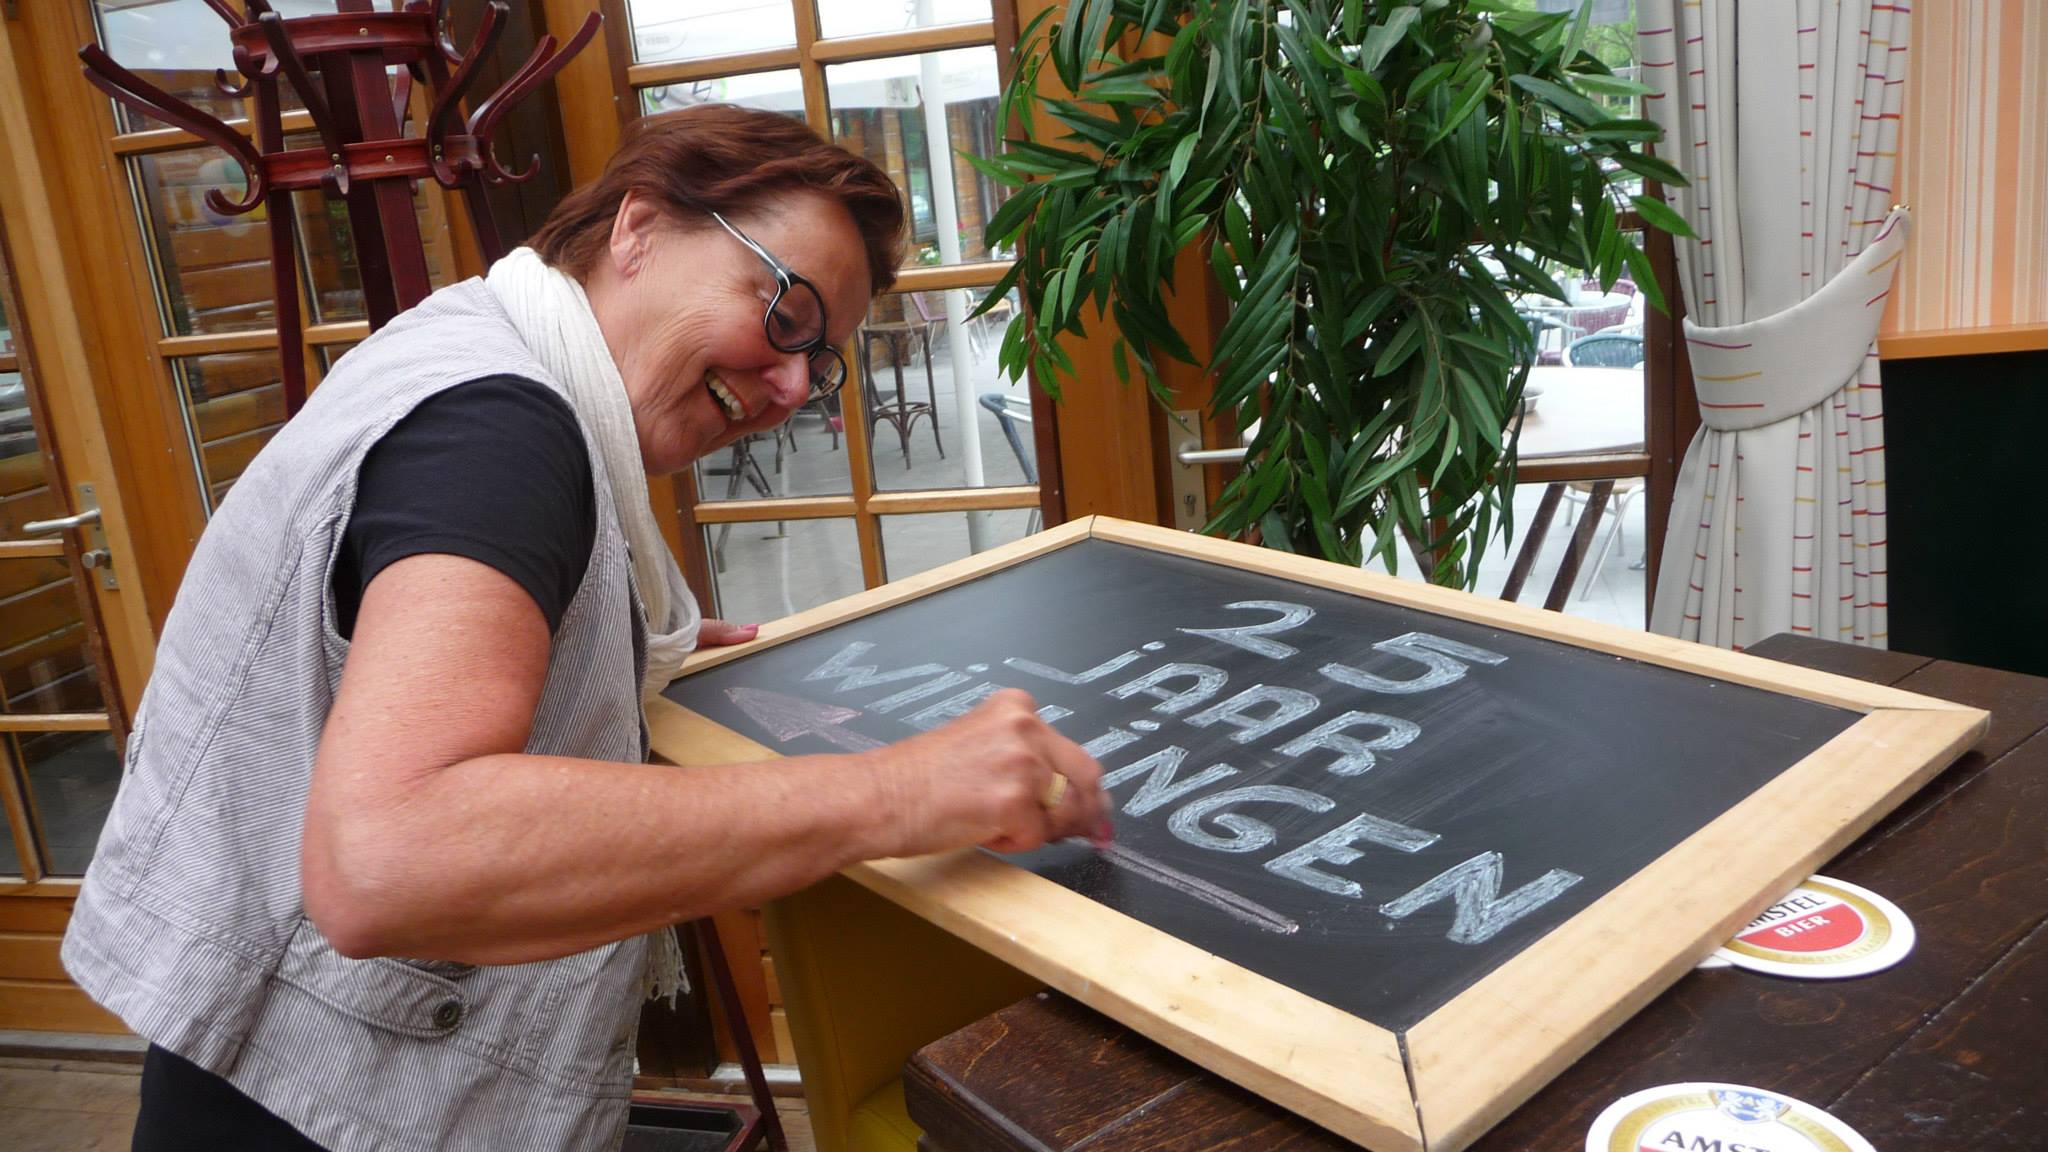 25
JAAR
WIELINGEN
AMSTEL
BIER
AMST